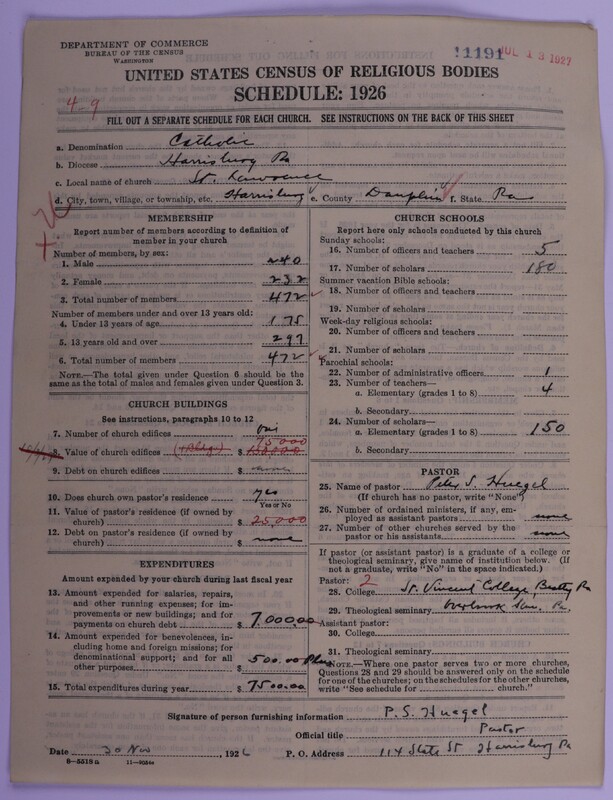 DEPARTMENT OF COMMERCE
BUREAU OF THE CENSUS
WASHINGTON
11191 JUL 13 1927
UNITED STATES CENSUS OF RELIGIOUS BODIES
SCHEDULE: 1926
4-9
FILL OUT A SEPARATE SCHEDULE FOR EACH CHURCH. SEE INSTRUCTIONS ON THE BACK OF THIS SHEET
a. Denomination Catholic
b. Diocese Harrisburg Pa
c. Local name of church St. Lawrence
d. City, town, village, or township, etc. Harrisburg e. County Dauphin f. State Pa
MEMBERSHIP
Report number of members according to definition of member in your church
Number of members, by sex:
1. Male 240
2. Female 232
3. Total number of members 472
Number of members under and over 13 years old:
4. Under 13 years of age 175
5. 13 years old and over 297
6. Total number of members 472
NOTE.—The total given under Question 6 should be the same as the total of males and females given under Question 3.
CHURCH BUILDINGS
See instructions, paragraphs 10 to 12
7. Number of church edifices one
8. Value of church edifices $ 75,000
9. Debt on church edifices $
10. Does church own pastor's residence yes
Yes or No
11. Value of pastor's residence (if owned by church) $ 25,000
12. Debt on pastor's residence (if owned by church) $ none
EXPENDITURES
Amount expended by your church during last fiscal year
13. Amount expended for salaries, repairs, and other running expenses; for improvements or new buildings; and for payments on church debt $ 7,000.00
14. Amount expended for benevolences, including home and foreign missions; for denominational support; and for all other purposes $ 500.00 Plus
15. Total expenditures during year $ 7500.00
CHURCH SCHOOLS
Report here only schools conducted by this church
Sunday schools:
16. Number of officers and teachers 5
17. Number of scholars 180
Summer vacation Bible schools:
18. Number of officers and teachers
19. Number of scholars
Week-day religious schools:
20. Number of officers and teachers
21. Number of scholars
Parochial schools:
22. Number of administrative officers 1
23. Number of teachers—
a. Elementary (grades 1 to 8) 4
b. Secondary
24. Number of scholars—
a. Elementary (grades 1 to 8) 150
b. Secondary
PASTOR
25. Name of pastor Peter S. Huegel
(If church has no pastor, write "None")
26. Number of ordained ministers, if any, employed as assistant pastors none
27. Number of other churches served by the pastor or his assistants none
If pastor (or assistant pastor) is a graduate of a college or theological seminary, give name of institution below. (If not a graduate, write "No" in the space indicated.)
Pastor: 2
28. College St. Vincent College, Beatty Pa
29. Theological seminary Overbrook Sem. Pa
Assistant pastor:
30. College
31. Theological seminary
NOTE.—Where one pastor serves two or more churches, Questions 28 and 29 should be answered only on the schedule for one of the churches; on the schedules for the other churches, write "See schedule for church."
Signature of person furnishing information P. S. Huegel
Official title Pastor
Date 30 Nov, 1926 P. O. Address 114 State St Harrisburg Pa
8-5518a 11-9054a